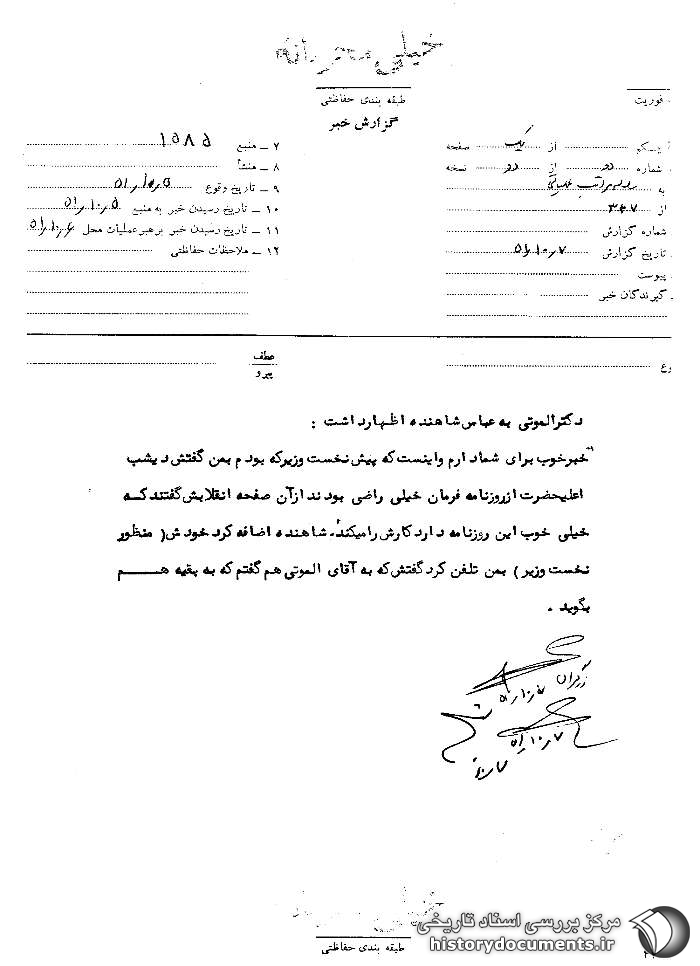 خیلی محرمانه
طبقه بندی حفاظتی
گزارش خبر
فوریت
از یک صفحه
شماره دو از دو نسخه
به
از ۳۴۷
شماره گزارش
تاریخ گزارش ۵۱٫۱۰٫۷
پیوست
گیرندگان خبر
۷ ـ منبع ۱۵۸۵
۸ ـ منشأ
۹ ـ تاریخ وقوع ۵۱٫۱۰٫۵
۱۰ ـ تاریخ رسیدن خبر به منبع ۵۱٫۱۰٫۵
۱۱ ـ تاریخ رسیدن خبر برهبر عملیات محل ۵۱٫۱۰٫۶
۱۲ ـ ملاحظات حفاظتی
عطف
پیرو
دکتر الموتی به عباس شاهنده اظهار داشت :
"خبر خوب برای شما دارم و اینست که پیش نخست وزیر که بودم بمن گفتش دیشب
اعلیحضرت از روزنامه فرمان خیلی راضی بودند از آن صفحه انقلابش گفتند که
خیلی خوب این روزنامه دارد کارش را میکند". شاهنده اضافه کرد خودش ( منظور
نخست وزیر ) بمن تلفن کرد گفتش که به آقای الموتی هم گفتم که به بقیه هم
بگوید .
۵۱٫۱۰٫۷
۵۱٫۱۰٫۷
طبقه بندی حفاظتی
مرکز بررسی اسناد تاریخی
historydocuments.ir